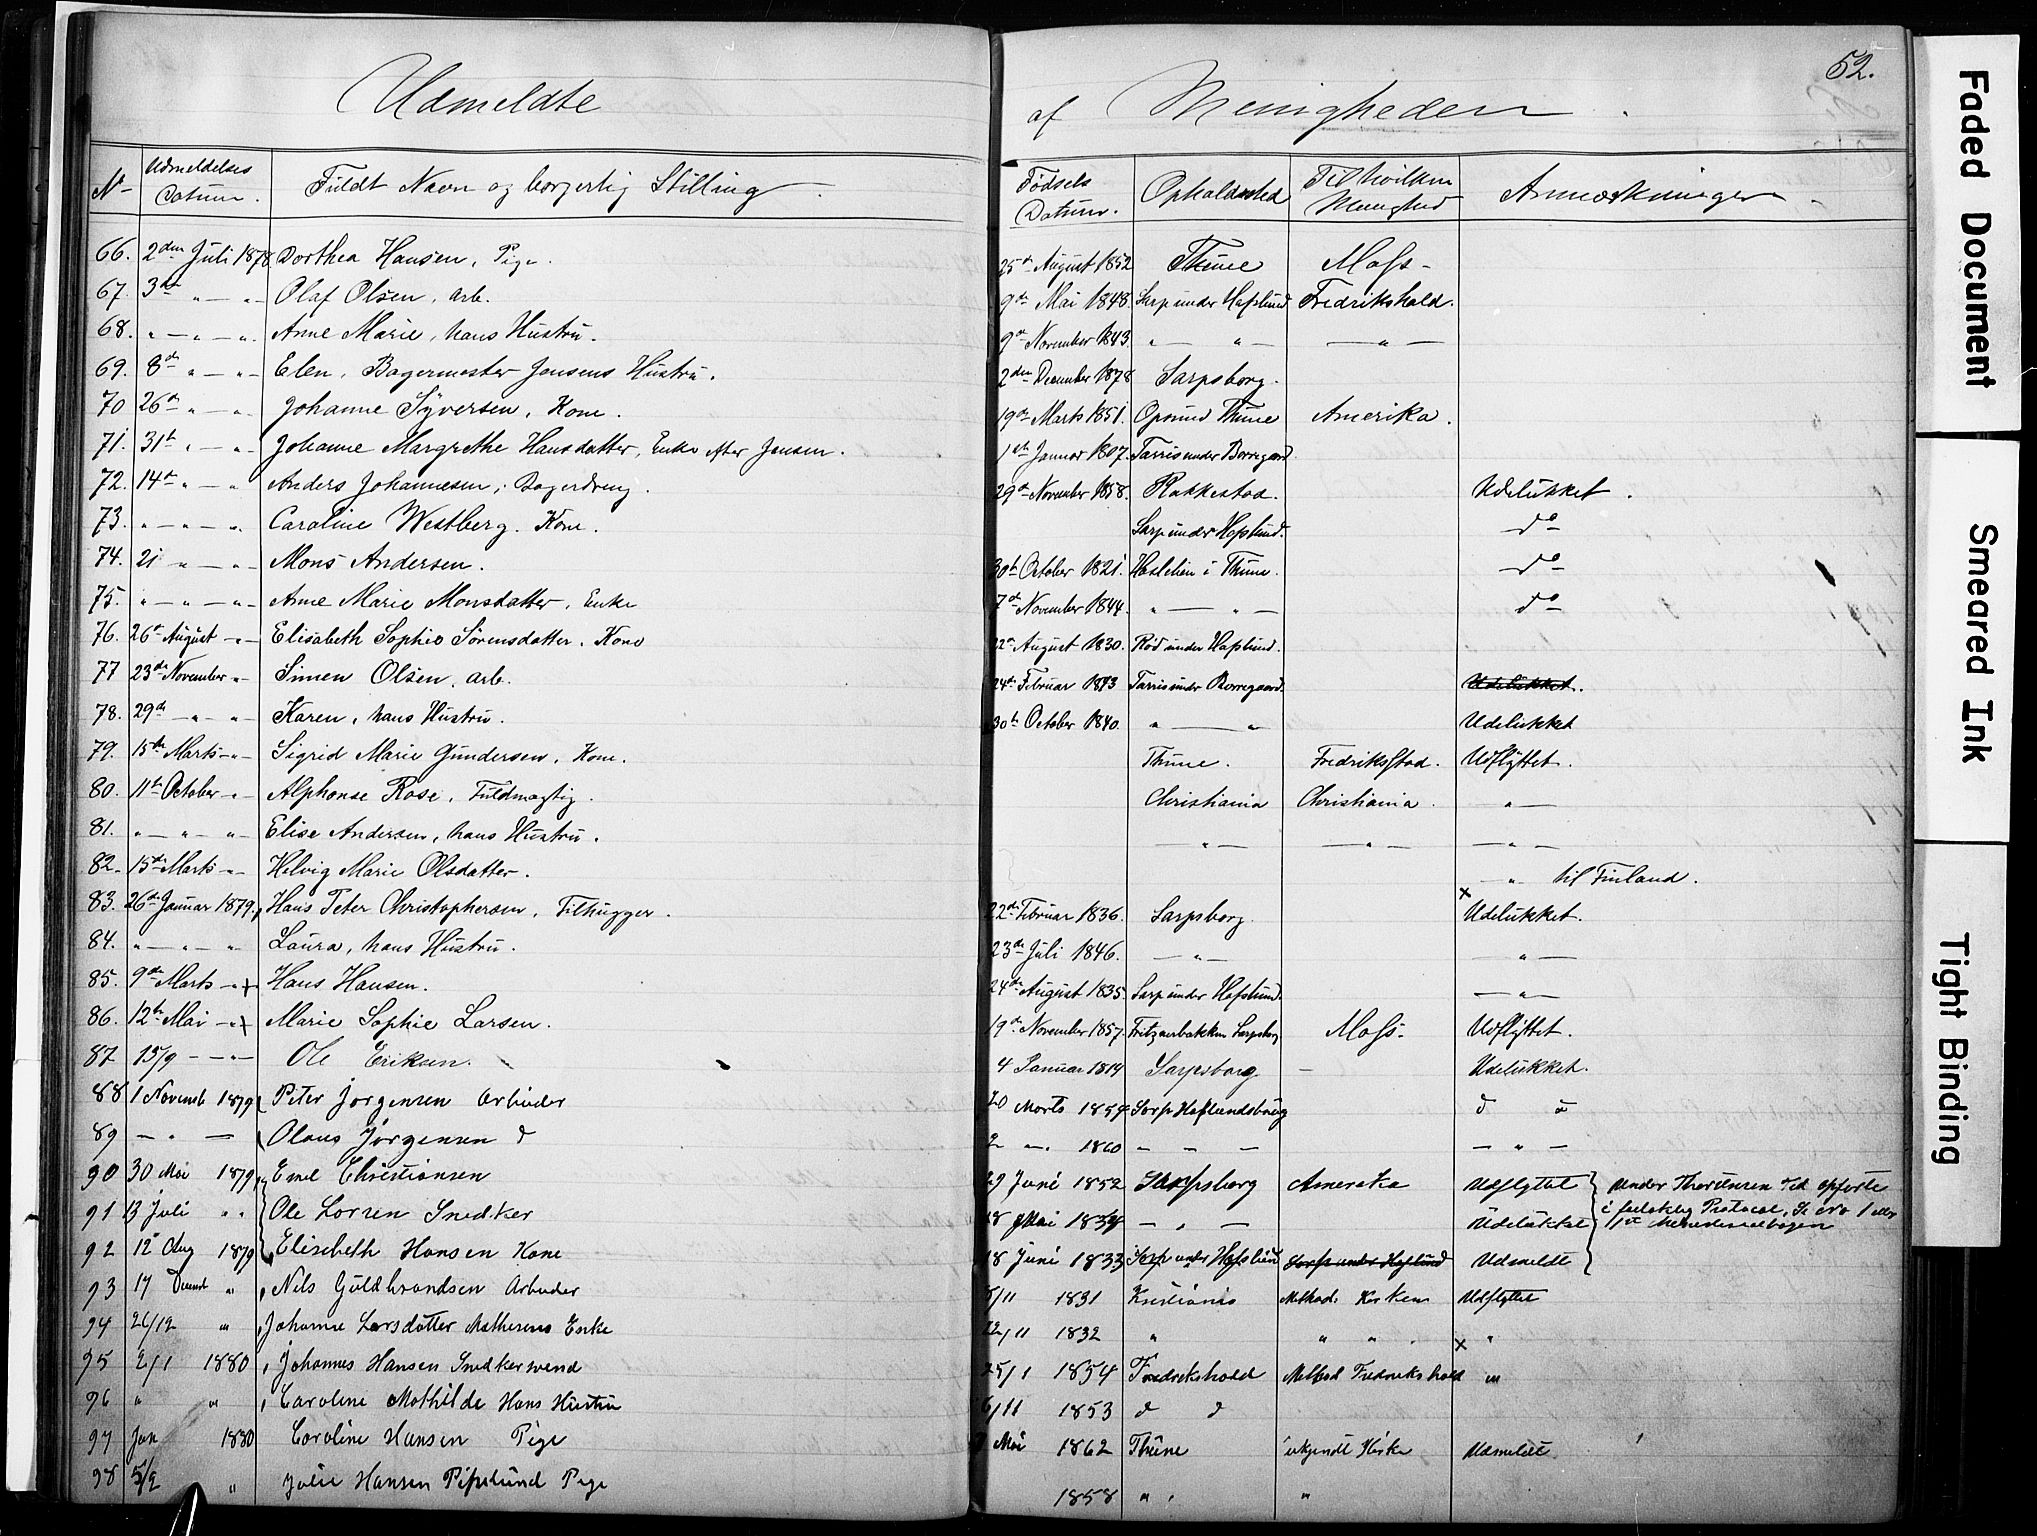 52.
Udmeldte af Menigheden.
No Udmeldelses Datum. Fuldt Navn og borgerlig Stilling. Fødsels Datum. Opholdssted Til hvilken Menighed Anmærkninger.
66. 2den Juli 1878 Dorthea Hansen, Pige. 25de August 1852 Thune Moss-
67. 3de " — " — Olaf Olsen, arb. 9de Mai 1848. Sarp under Hafslund Fredrikshald.
68. " — " — " Anne Marie, hans Hustru. 9de November 1843. " — " — — " —
69. 8de " — " — Elen, Bagermester Jensens Hustru. 2den December 1878 Sarpsborg.
70 26de " — " — Johanne Syversen, Kone. 19de Marts 1851. Opsund Thune Amerika.
71. 31te " — " — Johanne Margrethe Hansdatter, Enke efter Jensen. 1ste Januar 1807. Tarris under Borregaard.
72. 14de " — " Anders Johannesen, Bagerdreng. 29de November 1858. Rakkestad. Udelukket.
73. " — " — " Caroline Westberg. Kone. Sarp under Hafslund. do
74. 21 " — " — Mons Andersen. 30te October 1821. Haslelien i Thune. do
75. " — " — " — Anne Marie Monsdatter, Enke 7de November 1844. " — " — do
76. 26de August — " — Elisabeth Sophie Sørensdatter. Kone 22de August 1830. Rød under Hafslund.
77 23de November — " Simen Olsen, arb. 24de Februar 1843 Tarris under Borregaard. Udelukket.
78. 29de — " — " Karen, hans Hustru. 30te October 1840. " — " Udelukket
79. 15de Marts — " — Sigrid Marie Gundersen, Kone. Thune. Fredriksstad. Udflyttet.
80. 11te October — " — Alphonse Rose, Fuldmægtig. Christiania Christiania. — " —
81. " — " — " Elise Andersen, hans Hustru. — " — — " — — " —
82. 15de Marts — " — Helvig Marie Olsdatter. — " til Finland.
83. 26de Januar 1879. Hans Peter Christophersen, Filhugger. 22de Februar 1836. Sarpsborg. x Udelukket.
84. " — " — " Laura, hans Hustru. 23de Juli 1846. — " — — " —
85. 9de Marts — " x Hans Hansen. 24de August 1835. Sarp under Hafslund. — " —
86. 12te Mai — " x Marie Sophie Larsen. 19de November 1857. Fritznerbakken Sarpsborg Moss- Udflyttet.
87 15/9 — — " — Ole Eriksen. 4 Januar 1819 Sarpsborg — Udelukket.
88 1 Novemb 1879 Peter Jørgensen Arbeider 20 Marts 1859 Sarp Hafslundsborg d o
89 — " — Olaus Jørgensen d 2 — " 1860 — — — — " —
90 30 Mai 1879, Emel Christiansen 29 Juni 1852 Sarpsborg Amerika Udflyttet under Thorensen
91 13 Juli " " Ole Larsen Snedker 18 Mai 1839 — " — Udelukket Protocol,
92 12 Aug 1879 Elisebeth Hansen Kone 18 Juni 1833 Sarp under Hafslund Sarp under Hafslund Udmeldt
93 17 Decemb " Nils Guldbrandsen Arbeider 5/11 1831 Kristiania Methodi. Kirken Udflyttet
94 26/12 " Johanne Larsdatter Mathesens Enke 22/11 1832 " " " x "
95 2/1 1880 Johannes Hansen Snedkersvend 25/1 1854 Fredrikshald Method Fredrikshald "
96 " " Caroline Mathilde Hans Hustru 6/11 1853 d d
97 Jan 1880 Caroline Hansen Pige Mai 1862 Thune Udmeldt
98 5/2 " Julie Hansen Pipslund Pige 1858 " " "
Faded Document
Smeared Ink
Tight Binding